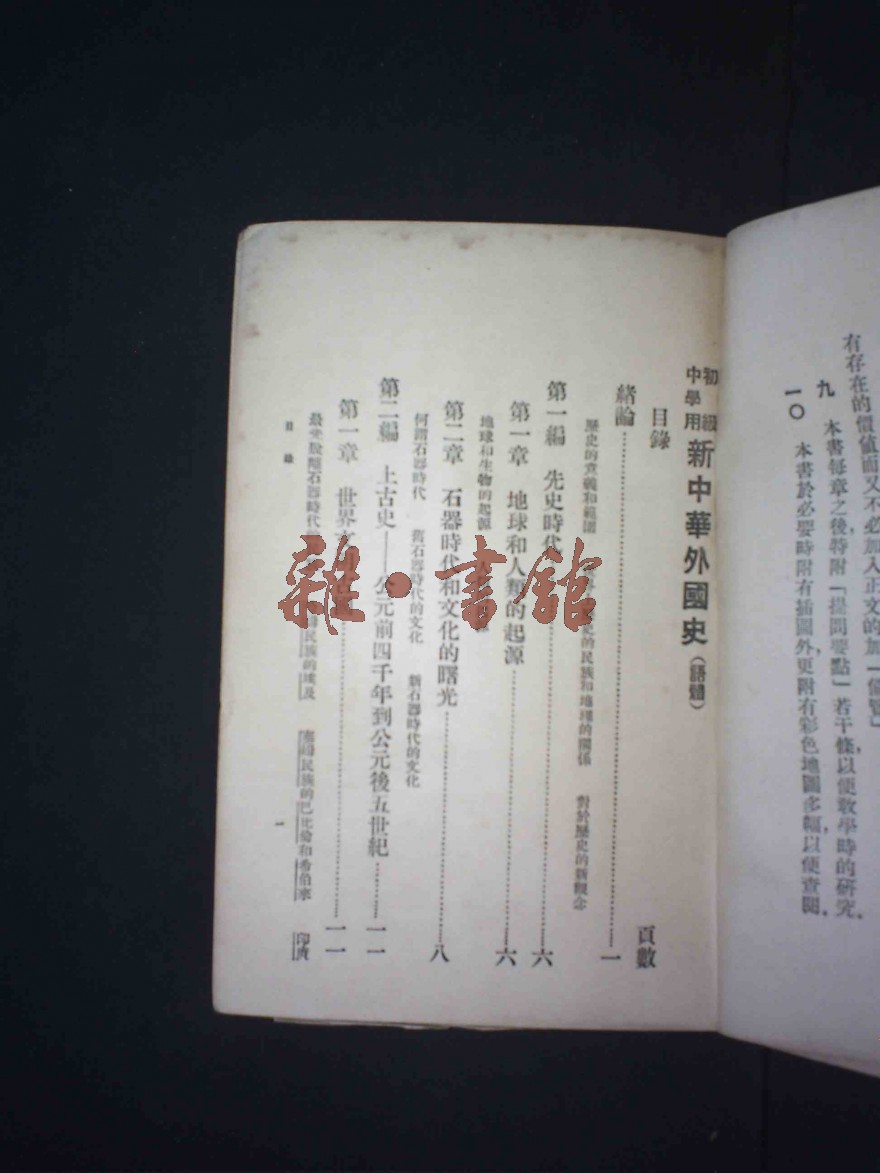 有存在的價值而又不必加入正文的加「備覽」
九　本書每章之後，特附「提問要點」若干條，以便敎學時的研究．
一〇　本書於必要時附有插圖外，更附有彩色地圖多幅，以便查閱．
初級中學用 新中華外國史（語體）
目錄　頁數
緒論……一
歷史的意義和範圍　歷史的民族和地理的關係　對於歷史的新觀念
第一編　先史時代……六
第一章　地球和人類的起源……六
地球和生物的起源
第二章　石器時代和文化的曙光……八
何謂石器時代　舊石器時代的文化　新石器時代的文化
第二編　上古史——公元前四千年到公元後五世紀……一一
第一章　世界文……一一
最先脫離石器時代的　民族的埃及　塞姆民族的巴比倫和希伯來　印度
目錄
一
雜·書館